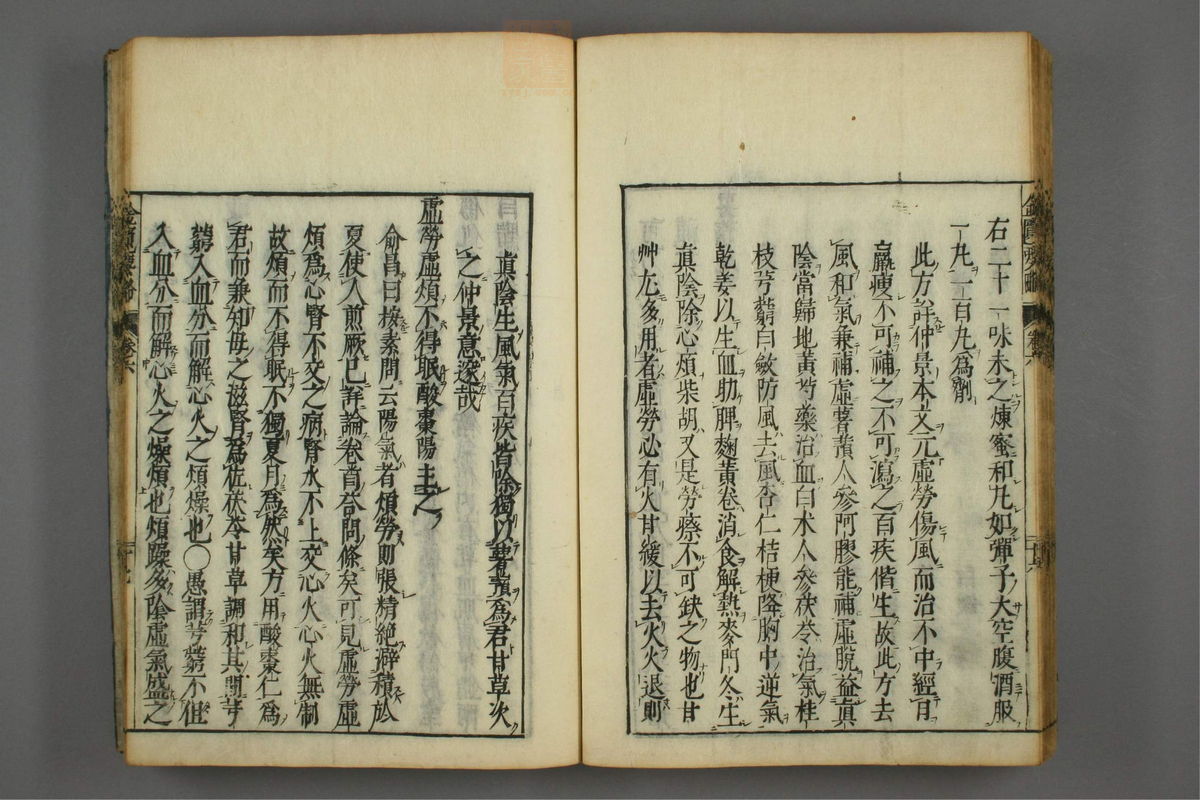 右二十一味末之煉蜜和丸如彈子大空腹酒服
一丸一百丸為劑
此方詳仲景本文元虛勞傷風而治不中經月
羸瘦不可補之不可瀉之百疾偕生故此方去
風和氣兼補虛薯蕷人參阿膠能補虛脫益真
陰當歸地黃芍藥治血白朮人參茯苓治氣桂
枝芎藭白斂防風去風杏仁桔梗降胸中逆氣
乾姜以生血助脾麴黃卷消食解熱麥門冬生
真陰除心煩柴胡又是勞瘵不可缺之物也甘
艸尤多用者虛勞必有火甘緩以去火火退則
真陰生風氣百疾皆除獨以薯蕷為君甘草次
之仲景意遂哉
虛勞虛煩不得眠酸棗湯主之
俞昌曰按素問云陽氣者煩勞則張精絕辟積於
夏使人煎厥已詳論卷首答問條矣可見虛勞虛
煩為心腎不交之病腎水不上交心火心火無制
故煩而不得眠不獨夏月為然矣方用酸棗仁為
君而兼知母之滋腎為佐茯苓甘草調和其間芎
藭入血分而解心火之煩燥也○愚謂芎藭不但
入血分而解心火之燥煩也煩躁多陰虛氣盛之
卷六